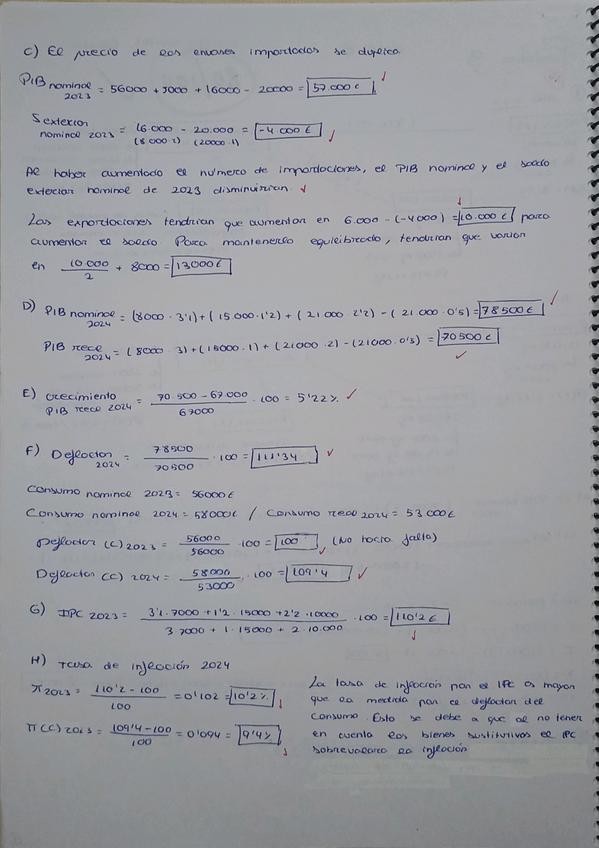 C) El precio de los envases importados se duplica.
PIB nominal 2023 = 56000 + 5000 + 16000 - 20000 = 57.000 €
S exterior nominal 2023 = 16.000 - 20.000 = -4 000 €
(8 000·2) (20000·1)
Al haber aumentado el número de importaciones, el PIB nominal y el saldo
exterior nominal de 2023 disminuirían.
Las exportaciones tendrían que aumentar en 6.000 - (-4000) = 10.000 € para
aumentar el saldo Para mantenerlo equilibrado, tendrían que variar
en 10 000 / 2 + 8000 = 13000 €
D) PIB nominal 2024 = (8000 · 3'1) + (15.000 · 1'2) + (21 000 · 2'2) - (21 000 · 0'5) = 78 500 €
PIB real 2024 = (8000 · 3) + (15000 · 1) + (21000 · 2) - (21000 · 0'5) = 70 500 €
E) crecimiento PIB real 2024 = 70 500 - 67 000 / 67000 · 100 = 5'22 %
F) Deflactor 2024 = 78500 / 70500 · 100 = 111'34
Consumo nominal 2023 = 56000 €
Consumo nominal 2024 = 58000 € / Consumo real 2024 = 53 000 €
Deflactor (C) 2023 = 56000 / 56000 · 100 = 100 (No hacía falta)
Deflactor (C) 2024 = 58000 / 53000 · 100 = 109'4
G) IPC 2023 = 3'1 · 7000 + 1'2 · 15000 + 2'2 · 10000 / 3 · 7000 + 1 · 15000 + 2 · 10.000 · 100 = 110'2 €
H) Tasa de inflación 2024
π 2023 = 110'2 - 100 / 100 = 0'102 = 10'2 %
π (C) 2023 = 109'4 - 100 / 100 = 0'094 = 9'4 %
La tasa de inflación por el IPC es mayor
que la medida por el deflactor del
consumo. Esto se debe a que al no tener
en cuenta los bienes sustitutivos el IPC
sobrevalora la inflación